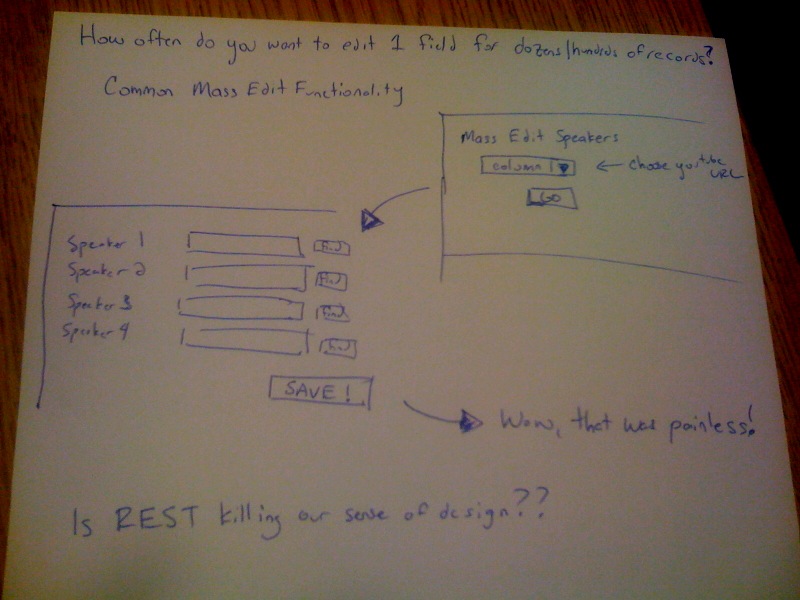 How often do you want to edit 1 field for dozens/hundreds of records?
Common Mass Edit Functionality
Mass Edit Speakers
column 1
← Choose youtube URL
GO
Speaker 1 find
Speaker 2 find
Speaker 3 find
Speaker 4 find
SAVE!
Wow, that was painless!
Is REST killing our sense of design??